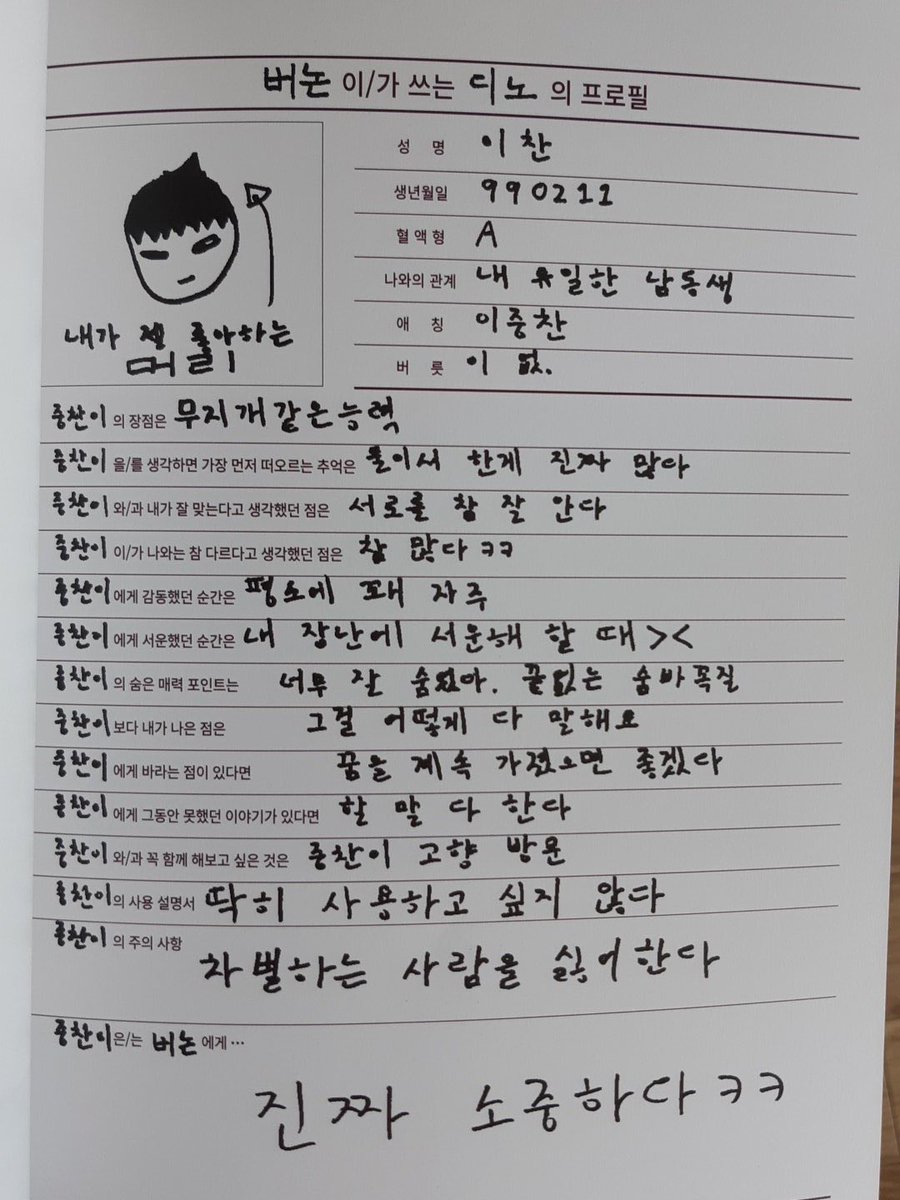 버논 이/가 쓰는 디노 의 프로필
내가 젤 좋아하는
머리
성 명 이찬
생년월일 990211
혈액형 A
나와의 관계 내 유일한 남동생
애 칭 이중찬
버 릇 이 없.
중찬이 의 장점은 무지개같은능력
중찬이 을/를 생각하면 가장 먼저 떠오르는 추억은 둘이서 한게 진짜 많다
중찬이 와/과 내가 잘 맞는다고 생각했던 점은 서로를 참 잘 안다
중찬이 이/가 나와는 참 다르다고 생각했던 점은 참 많다ㅋㅋ
중찬이 에게 감동했던 순간은 평소에 꽤 자주
중찬이 에게 서운했던 순간은 내 장난에 서운해 할 때><
중찬이 의 숨은 매력 포인트는 너무 잘 숨었아. 끝없는 숨바꼭질
중찬이 보다 내가 나은 점은 그걸 어떻게 다 말해요
중찬이 에게 바라는 점이 있다면 꿈을 계속 가졌으면 좋겠다
중찬이 에게 그동안 못했던 이야기가 있다면 할 말 다 한다
중찬이 와/과 꼭 함께 해보고 싶은 것은 중찬이 고향 방문
중찬이 의 사용 설명서 딱히 사용하고 싶지 않다
중찬이 의 주의 사항 차별하는 사람을 싫어한다
중찬이 은/는 버논 에게 …
진짜 소중하다ㅋㅋ